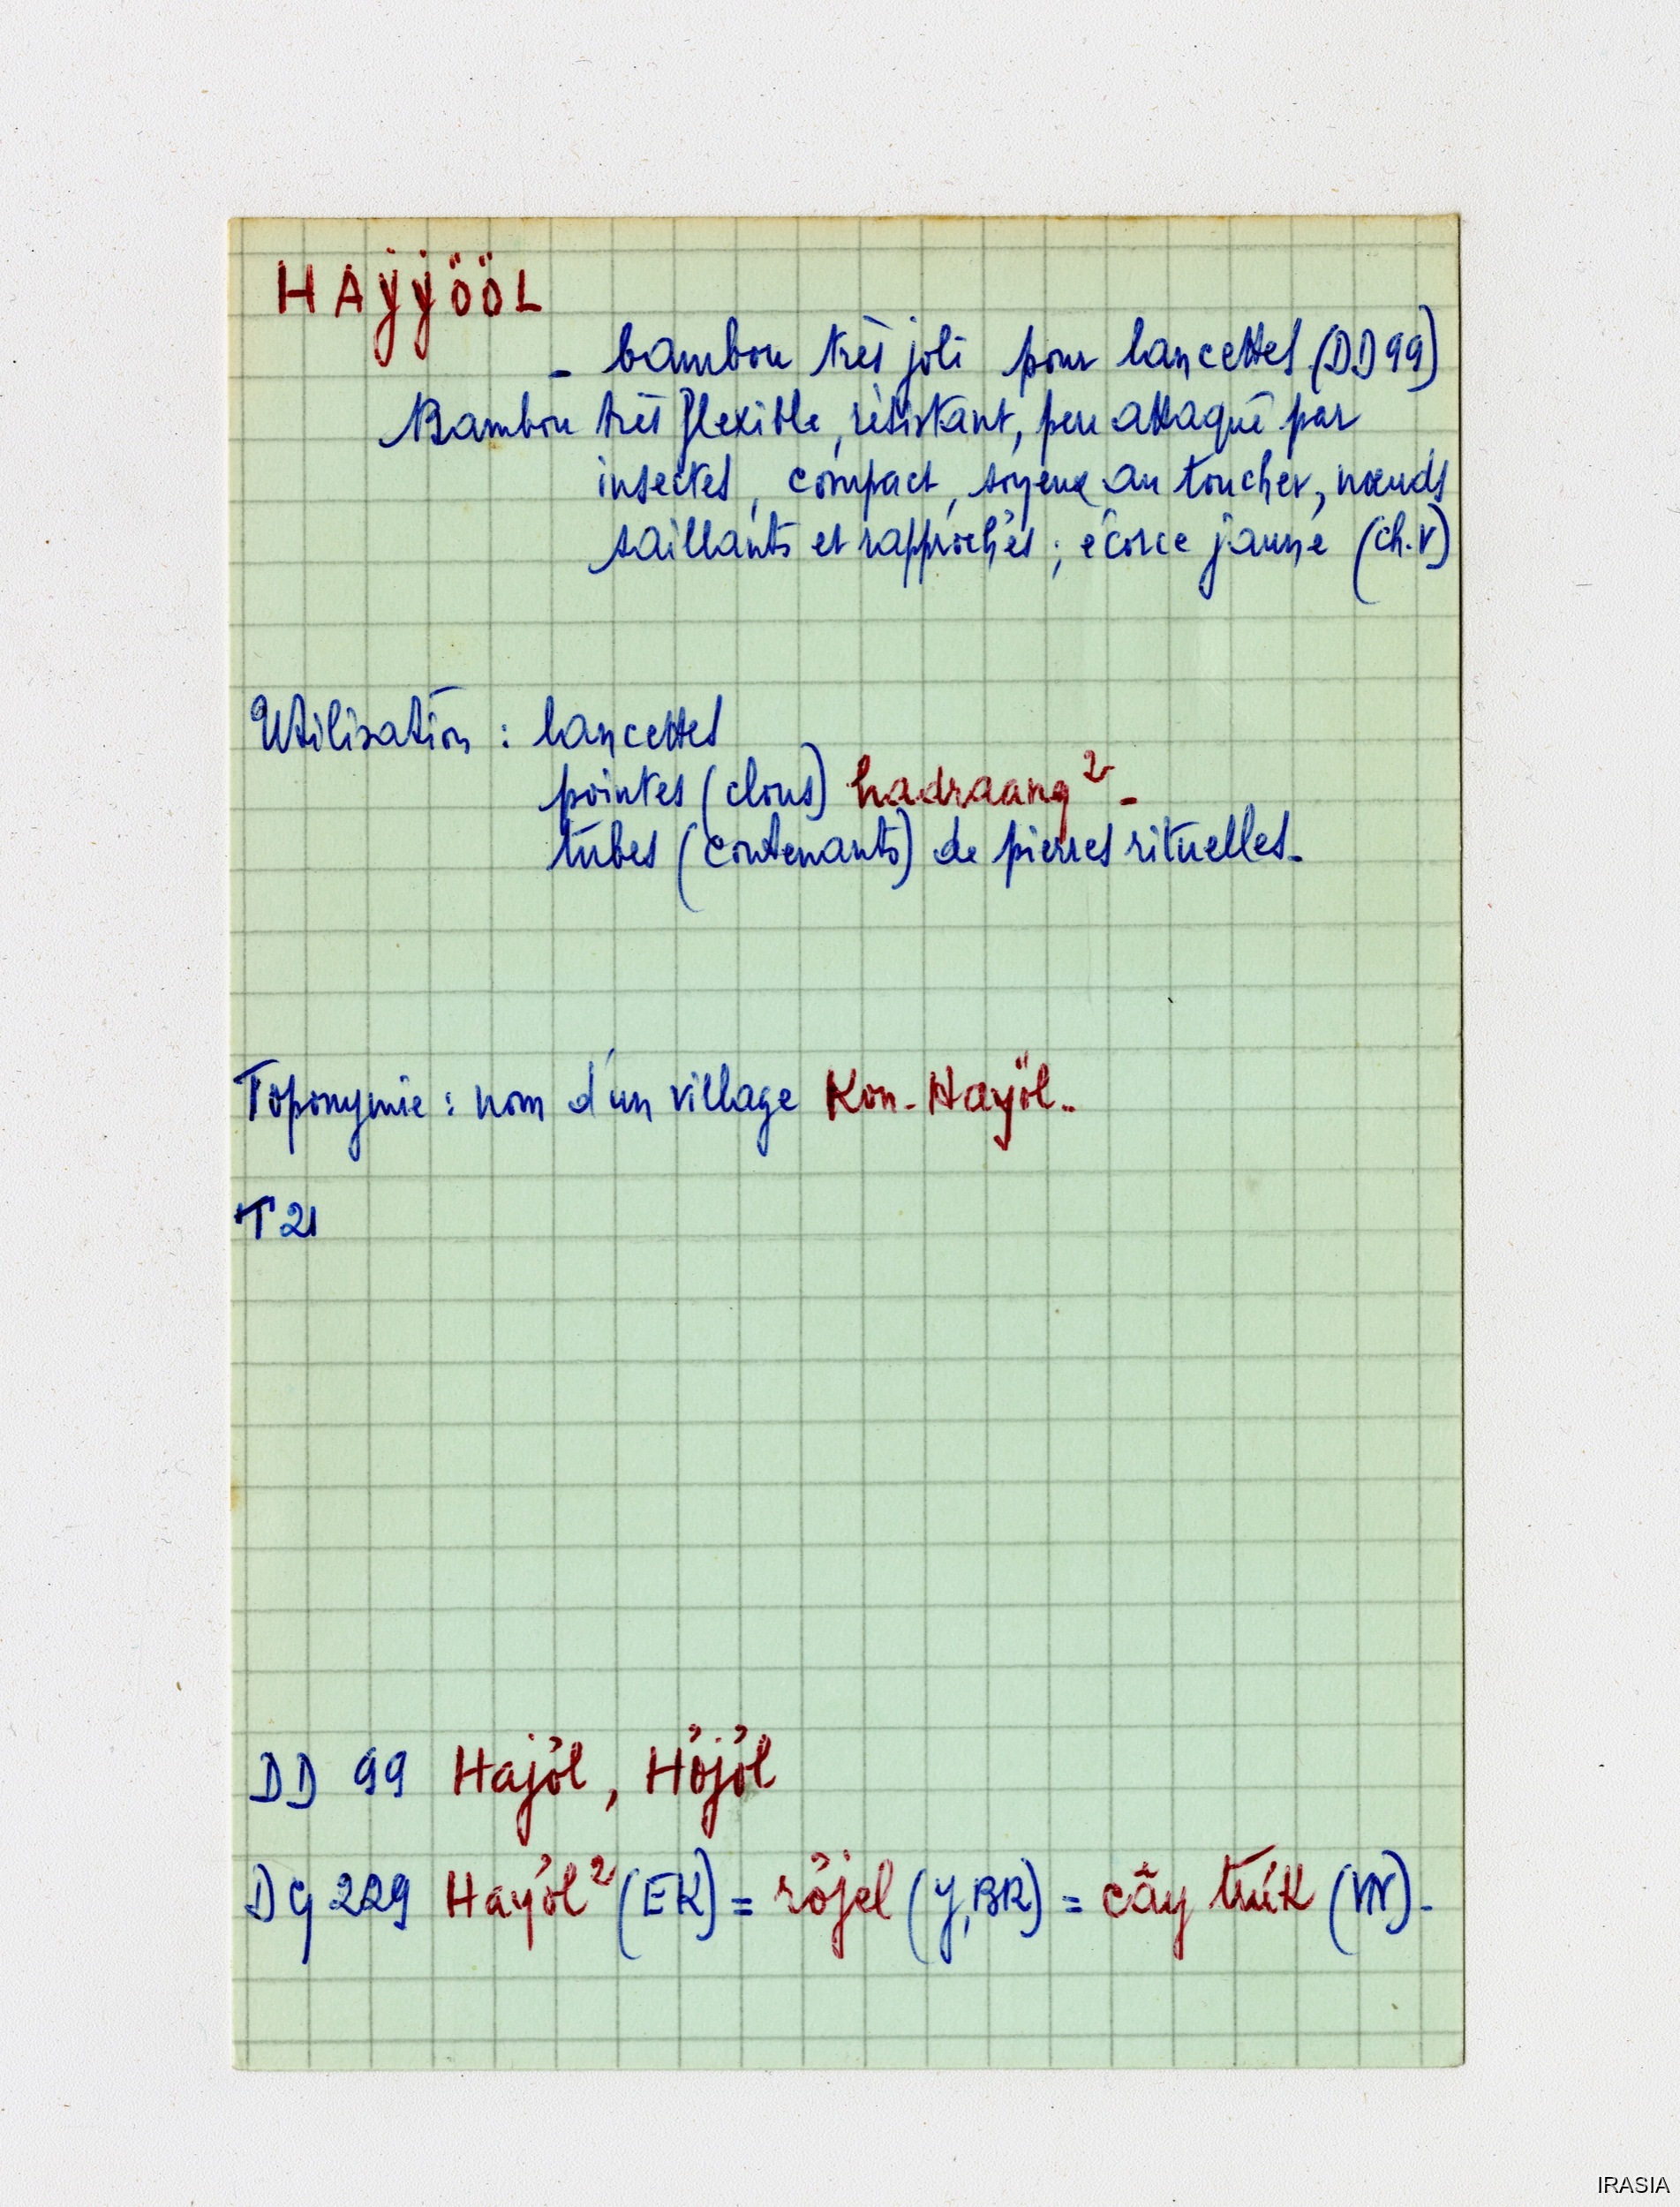 HAŸŸÖÖL
- bambou très joli pour lancettes (DD99)
Bambou très flexible, résistant, peu attaqué par
insectes, compact, soyeux au toucher, nœuds
saillants et rapprochés ; écorce jaune (ch.V)
Utilisation : lancettes
pointes (clous) hadraang² -
tubes (contenants) de pierres rituelles -
Toponymie : nom d'un village Kon-Hayöl..
T21
DD 99 Hajỏl, Hỏjỏl
DG 229 Hayỏl² (EK) = rỏjel (J,BR) = cây trúk (VN) -
IRASIA